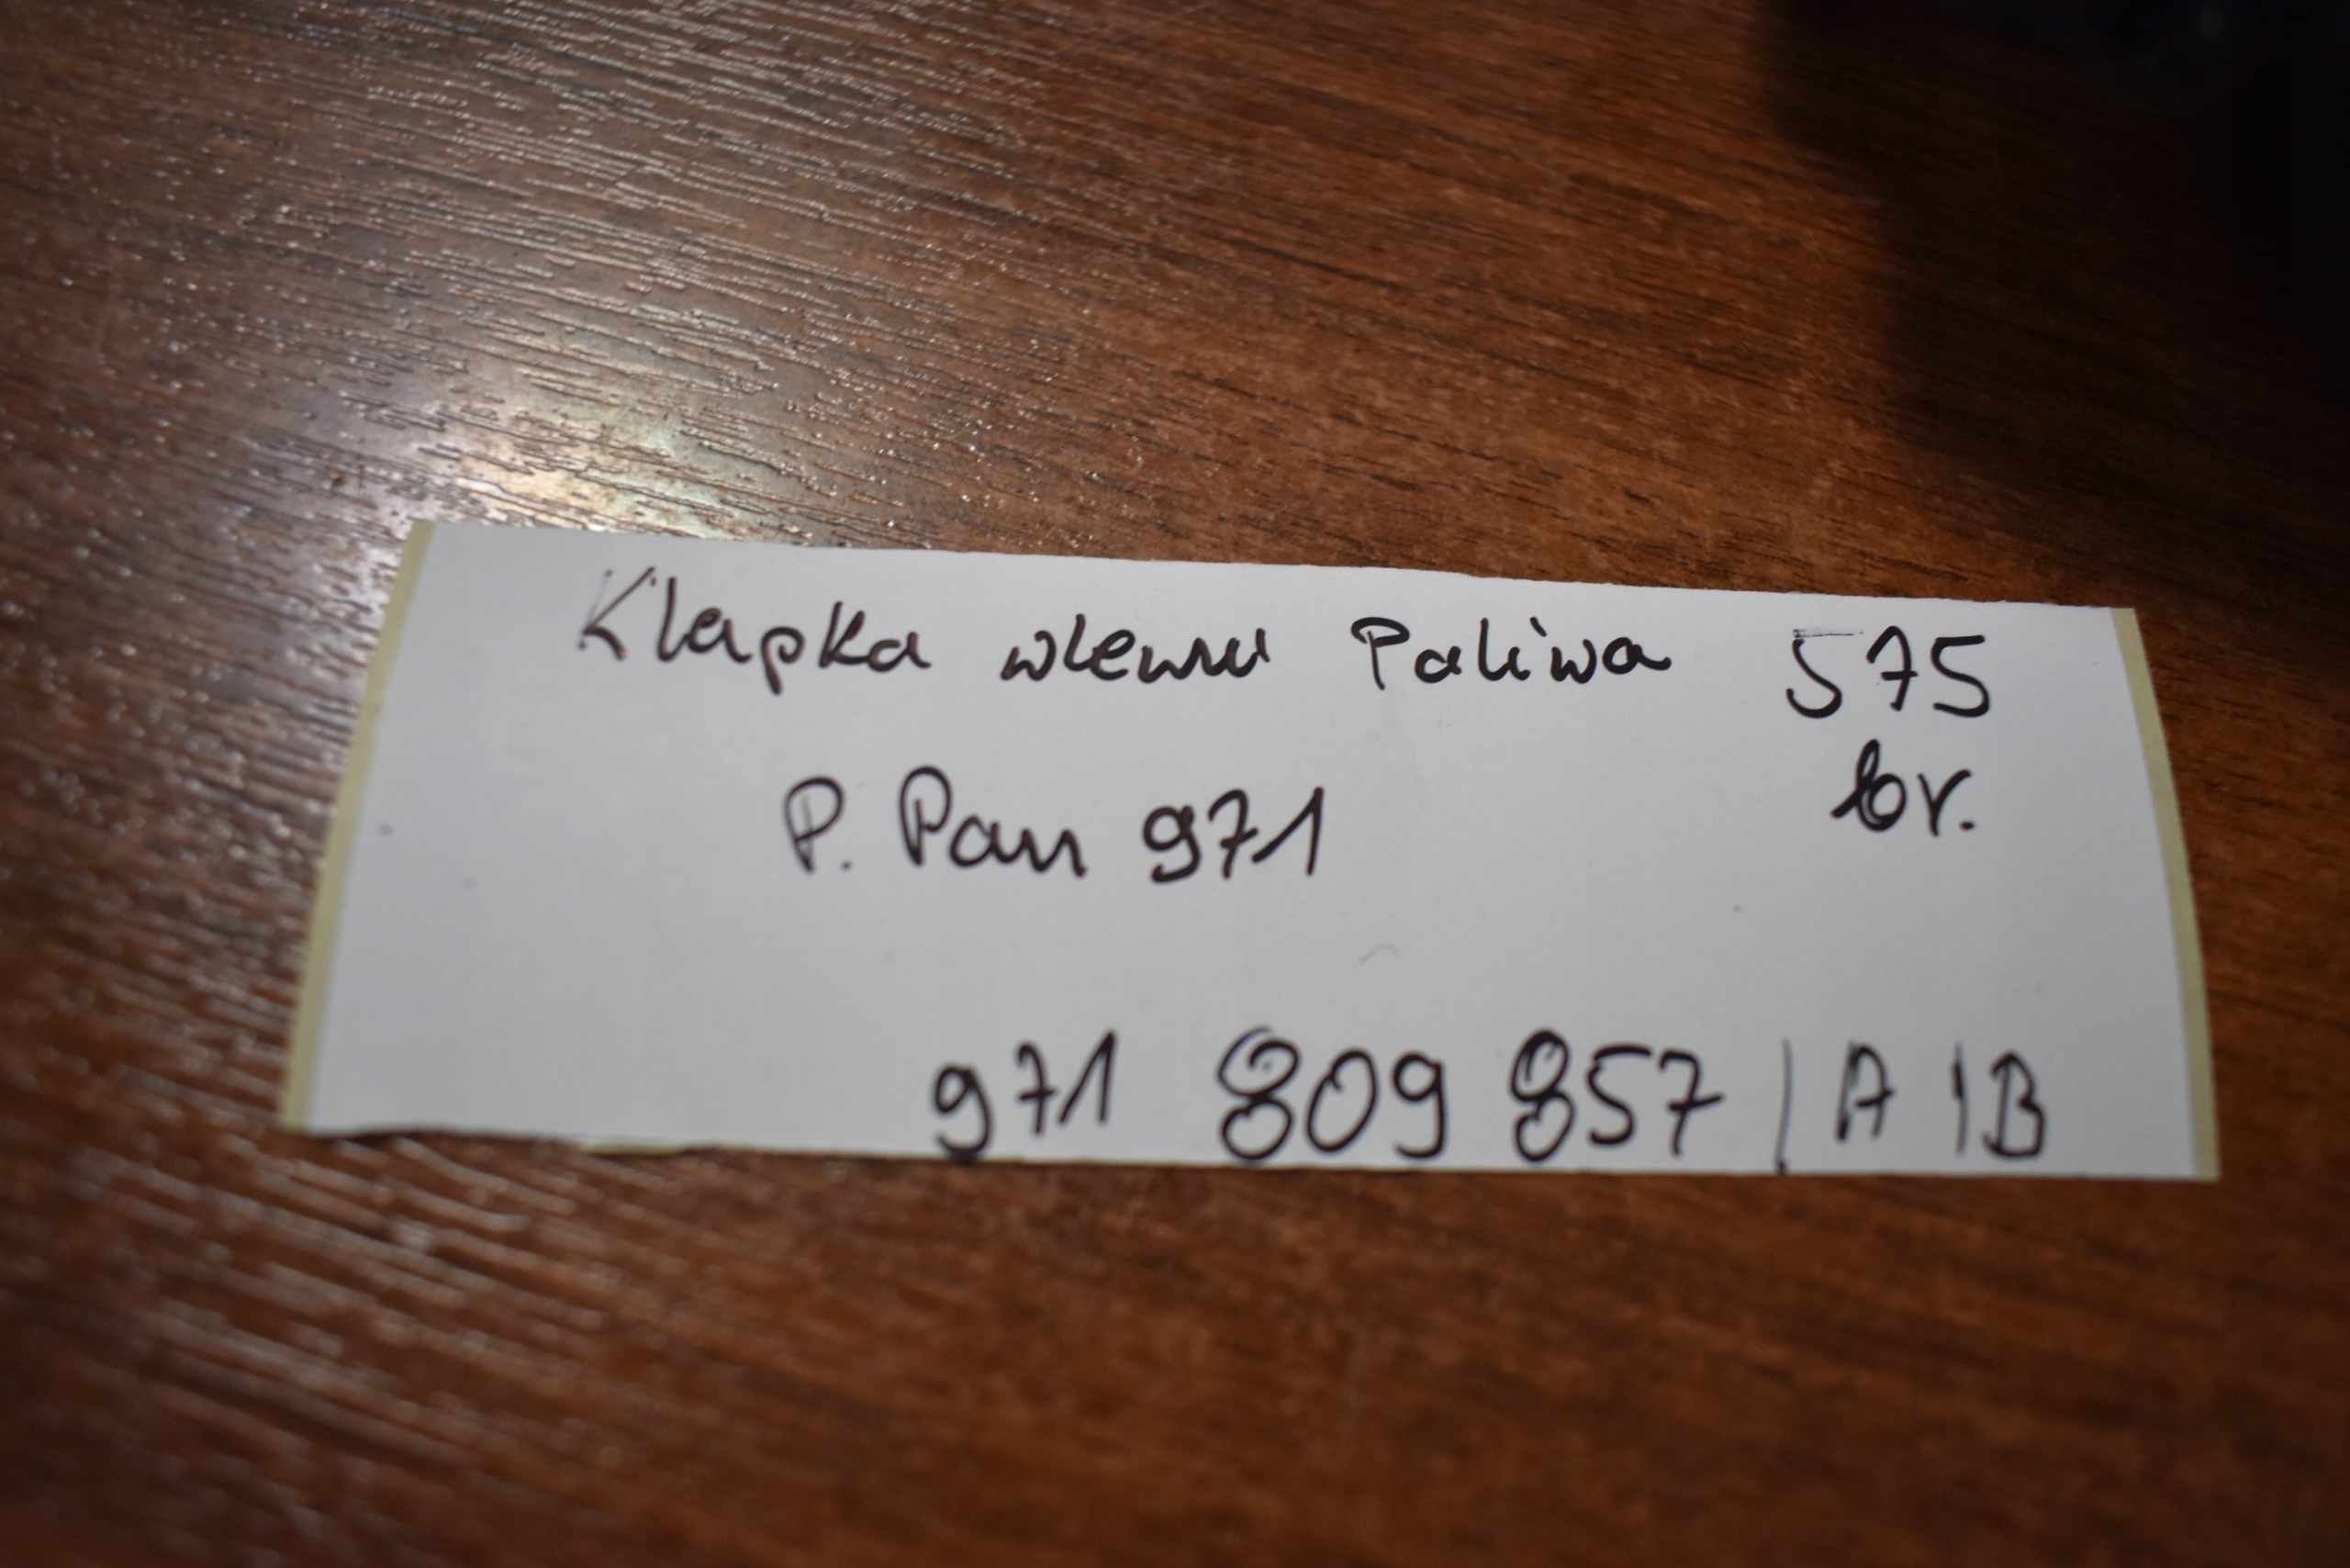 Klapka wlewu Paliwa 575
br.
P. Pan 971
971 809 857 / A / B